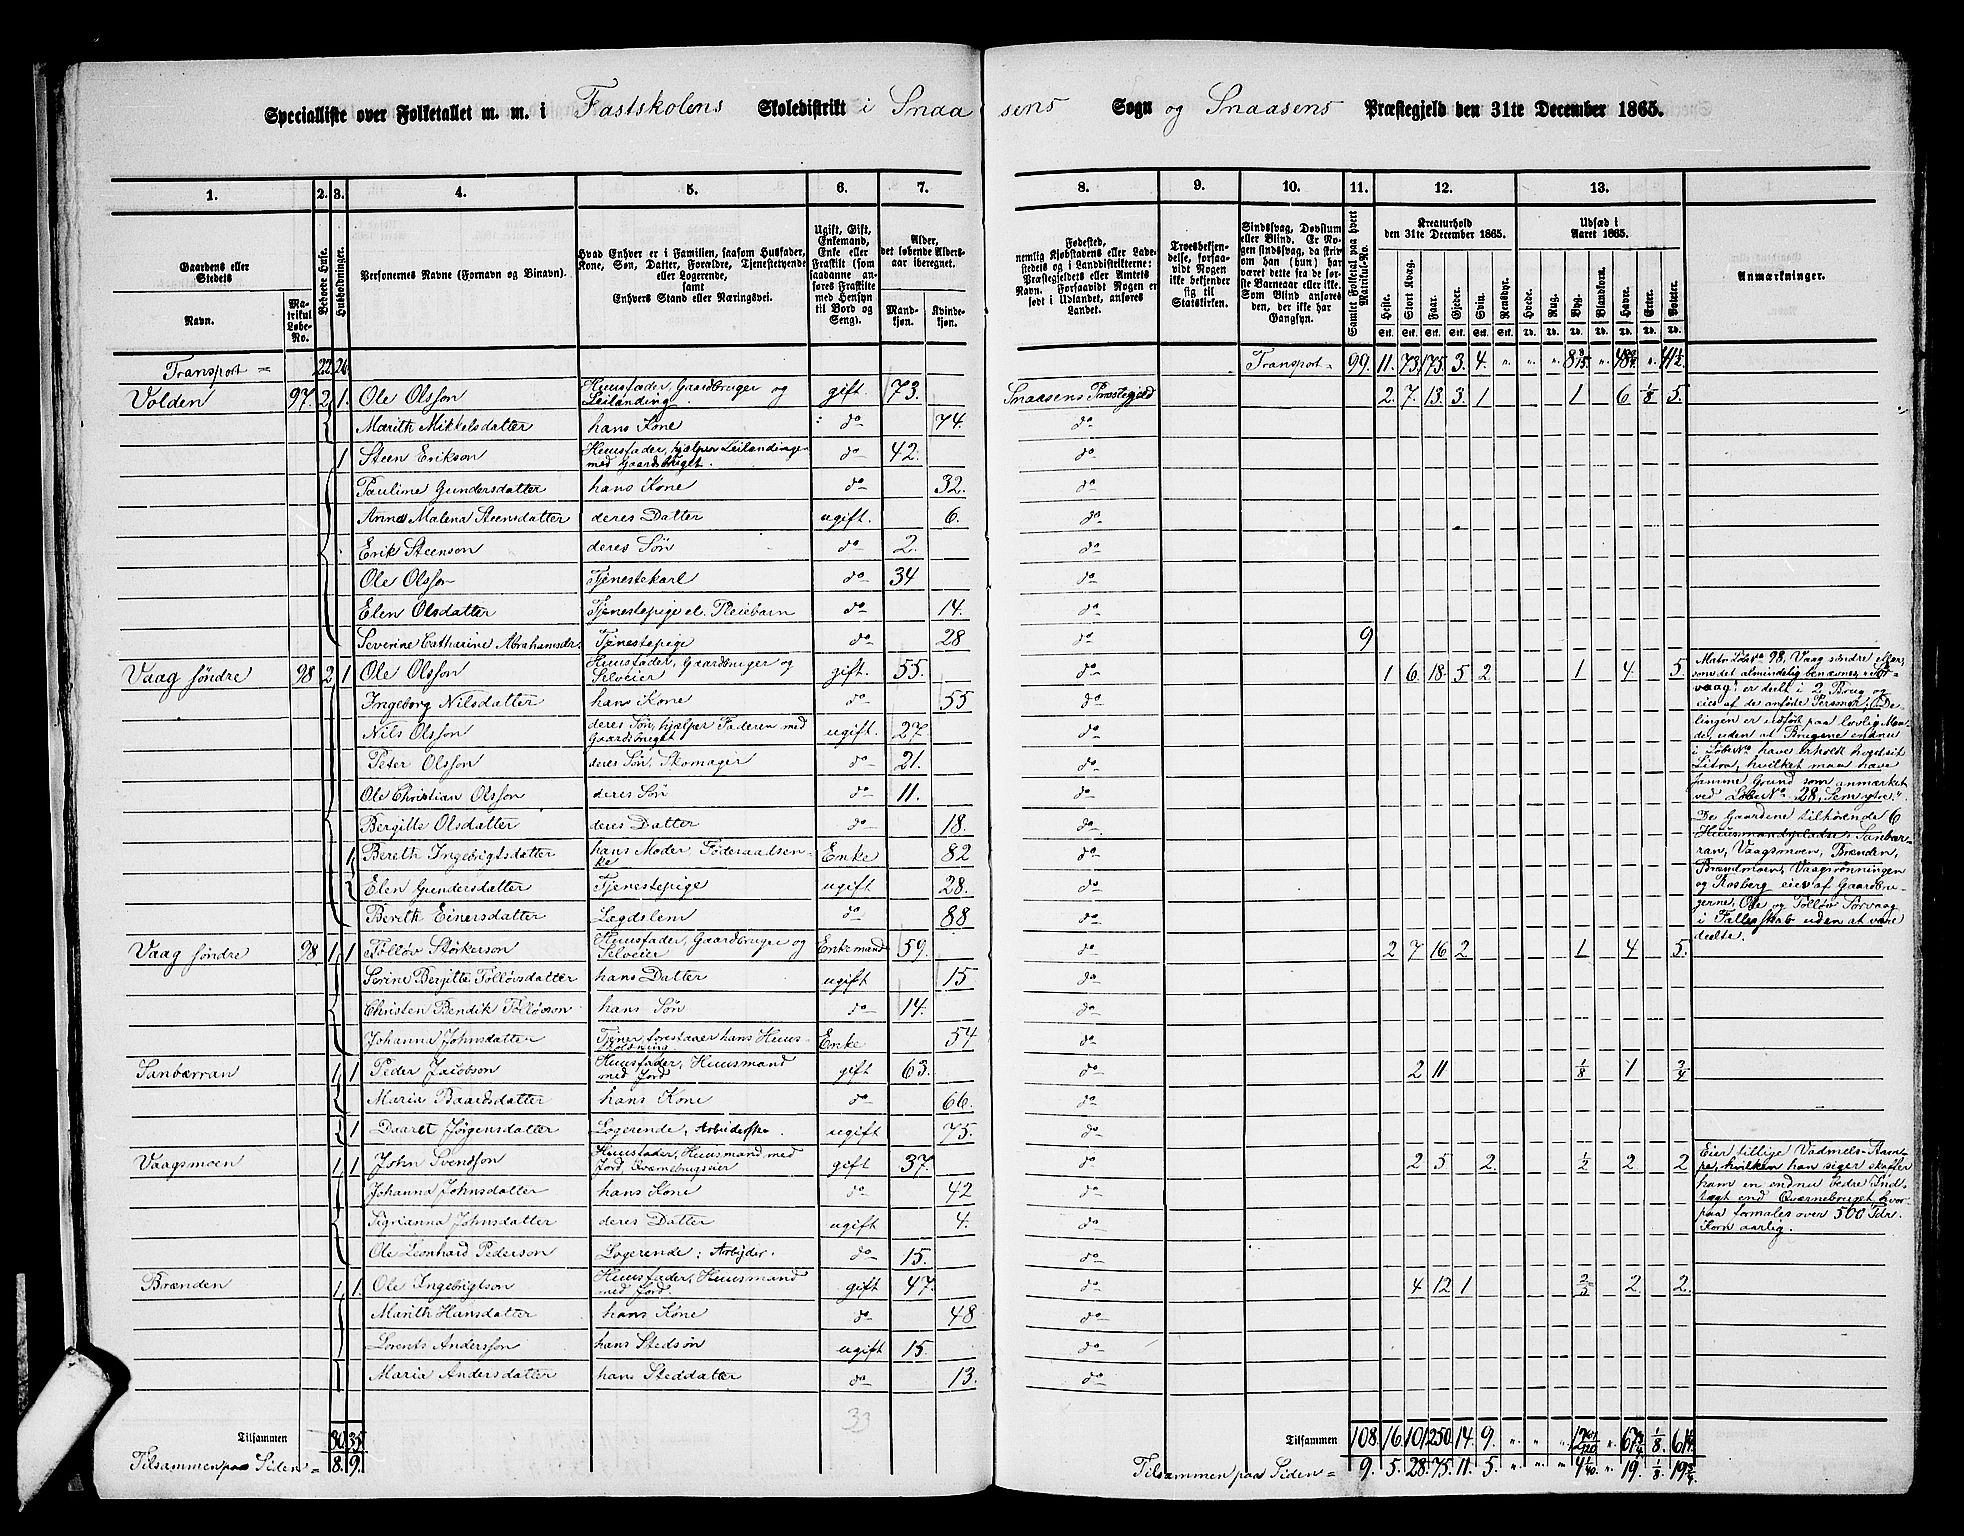 Specialliste over Folketallet m. m. i Fastskolens Skoledistrikt i Snaasens Sogn og Snaasens Præstegjeld den 31te December 1865.
1. 2. 3. 4. 5. 6. 7. 8. 9. 10. 11. 12. 13.
Gaardens eller Stedets Navn. Matrikul Løbe-No. Beboede Huse. Husholdninger. Personernes Navne (Fornavn og Binavn). Hvad Enhver er i Familien, saasom Husfader, Kone, Søn, Datter, Forældre, Tjenestetyende eller Logerende, samt Enhvers Stand eller Næringsvei. Ugift, Gift, Enkemand, Enke eller Fraskilt (som saadanne anføres Fraskilte med Hensyn til Bord og Seng). Alder, det løbende Alders-aar iberegnet. Mandkjøn. Kvindekjøn.
Fødested, nemlig Kjøbstadens eller Ladestedets og i Landdistrikterne: Præstegjeldets eller Amtets Navn. Forsaavidt Nogen er født i Udlandet, anføres Landet. Troesbekjendelse, forsaavidt Nogen ikke bekjender sig til Statskirken. Sindssvag, Døvstum eller Blind. Er Nogen sindssvag, da skrives om han (hun) har været dette fra de første Barneaar eller ikke. Som Blind anføres den, der ikke har Gangsyn. Samlet Folketal paa hvert Matrikul-No. Kreaturhold den 31te December 1865. Heste. Stort Kvæg. Faar. Gjeder. Svin. Rensdyr. Udsæd i Aaret 1865. Hvede. Rug. Byg. Blandkorn. Havre. Erter. Poteter. Anmærkninger.
Transport = 22 26 Transport 99. 11. 73. 175. 3. 4.
Volden 97. 2 1. Ole Olsson Huusfader, Gaardbruger og Leilænding. gift. 73. Snaasens Præstegjeld 2. 7. 13. 3. 1 1 6 1/8 5.
Marith Mikkelsdatter hans Kone do 74. do
1 Steen Erikson Huusfader, hjælper Leilændingen med Gaardsbruget. do 42. do
Pauline Gundersdatter hans Kone do 32. do
Anne Malena Steensdatter deres Datter ugift. 6. do
Erik Steenson deres Søn do 2. do
Ole Olsson Tjenestekarl do 34 do
Elen Olsdatter Tjenestepige el. Pleiebarn do 14. do
Severine Catharine Abrahamsdr. Tjenestepige do 28 do 9
Vaag søndre 98 2 1 Ole Olsson Huusfader, Gaardbruger og Selveier gift. 55. do 1 6. 18. 5 2 1 4. 5.
Ingeborg Nilsdatter hans Kone do 55 do
Nils Olsson deres Søn, hjælper Faderen med Gaardsbruget ugift. 27 do
Peter Olsson deres Søn, Skomager do 21. do
Ole Christian Olsson deres Søn do 11. do
Bergitte Olsdatter deres Datter do 18. do
1 Bereth Ingebrigtsdatter hans Moder Føderaadsenke Enke 82 do
Elen Gundersdatter Tjenestepige ugift 28. do
Berith Einersdatter Legdslem do 88 do
Matr. Løbe No 98, Vaag søndre eller, som det almindelig benævnes, "Sørvaag", er delt i 2 Brug og eies af de anførte Personer; Delingen er udført paa lovlig Maade, uden at Brugene endnu i Løbe No have erholdt Litra, hvilket maa have samme Grund som anmærket ved Løbe No 28, Sem ytre. De Gaardene tilhørende 6 Huusmandspladse, Sanbærran, Vaagsmoen, Brænden, Brændmoen, Vaagrønningen og Rosberg eies af Gaardbrugerne, Ole og Tolløv Sørvaag i Fællesskab uden at være delte.
Vaag søndre 98. 1 1 Tolløv Størkerson Huusfader, Gaardbruger og Selveier Enkemand 59. do 2 7 16 2 1 4 5.
Serine Bergitte Tolløvsdatter hans Datter ugift 15 do
Christen Bendik Tolløvson hans Søn do 14. do
Johanna Johnsdatter Tjener, forestaaer hans Huusholdning Enke 54 do
Sanbærran 1 1 Peder Jacobson Huusfader, Huusmand med Jord gift 63. do 2 11 1/8 1 3/4
Maria Baardsdatter hans Kone do 66. do
1 1 Daaret Jørgensdatter Logerende, Arbeiderske ugift 75. do
Vaagsmoen 1 1 John Svendson Huusfader, Huusmand med Jord, Qværnebrugseier gift 37. do 2 5 2. 1/2 2 2
Johanna Johnsdatter hans Kone do 42 do
Sigrianna Johnsdatter deres Datter ugift 4. do
Ole Leonhard Pederson Logerende: Arbejder. do 15. do
Eier tillige Vadmels-Stampe, hvilken han siger skaffer ham en endnu bedre Indtægt end Qværnebruget, hvorpaa formales over 500 Tdr Korn aarlig.
Brænden 1 1. Ole Ingebrigtson Huusfader, Huusmand med Jord. gift 47. do 4 12 1 2/3 2 2
Marith Hansdatter hans Kone do 48 do
Lorents Andersson hans Stedsøn ugift 15. do
Maria Andersdatter hans Steddatter do 13. do
33
Tilsammen 30 35 Tilsammen 108. 16. 101. 250. 14. 9.
Tilsammen paa Siden = 8. 9. Tilsammen paa Siden = 9. 5. 28. 75. 11. 5. 4 1/40 19. 1/8 19 3/4